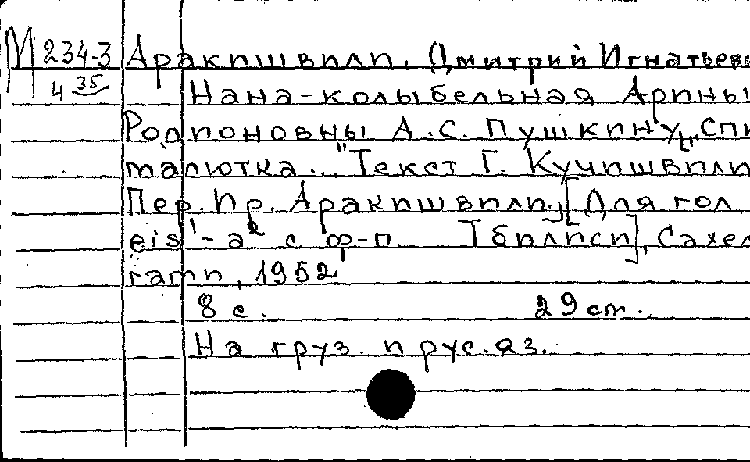 М 234-3 Аракишвили, Дмитрий Игнатьеви
4 35 Нана-колыбельная Арины
Родионовны А.С. Пушкину „Спи
малютка.." Текст Г. Кучишвили
Пер. Пр. Аракишвили] [Для гол
eis¹-a² с ф-п Тбилиси], Сахел
гами, 1952
8 с. 29 см.
На груз. и рус. яз.